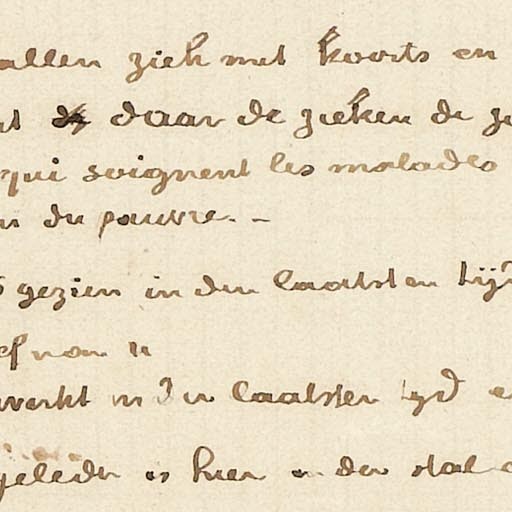 allen ziek met koorts en
daar de zieken de
qui soignent les malades
du pauvre. –
gezien in den laatsten tijd
van u
werkt in den laatsten tijd
geleden is hier in den stal